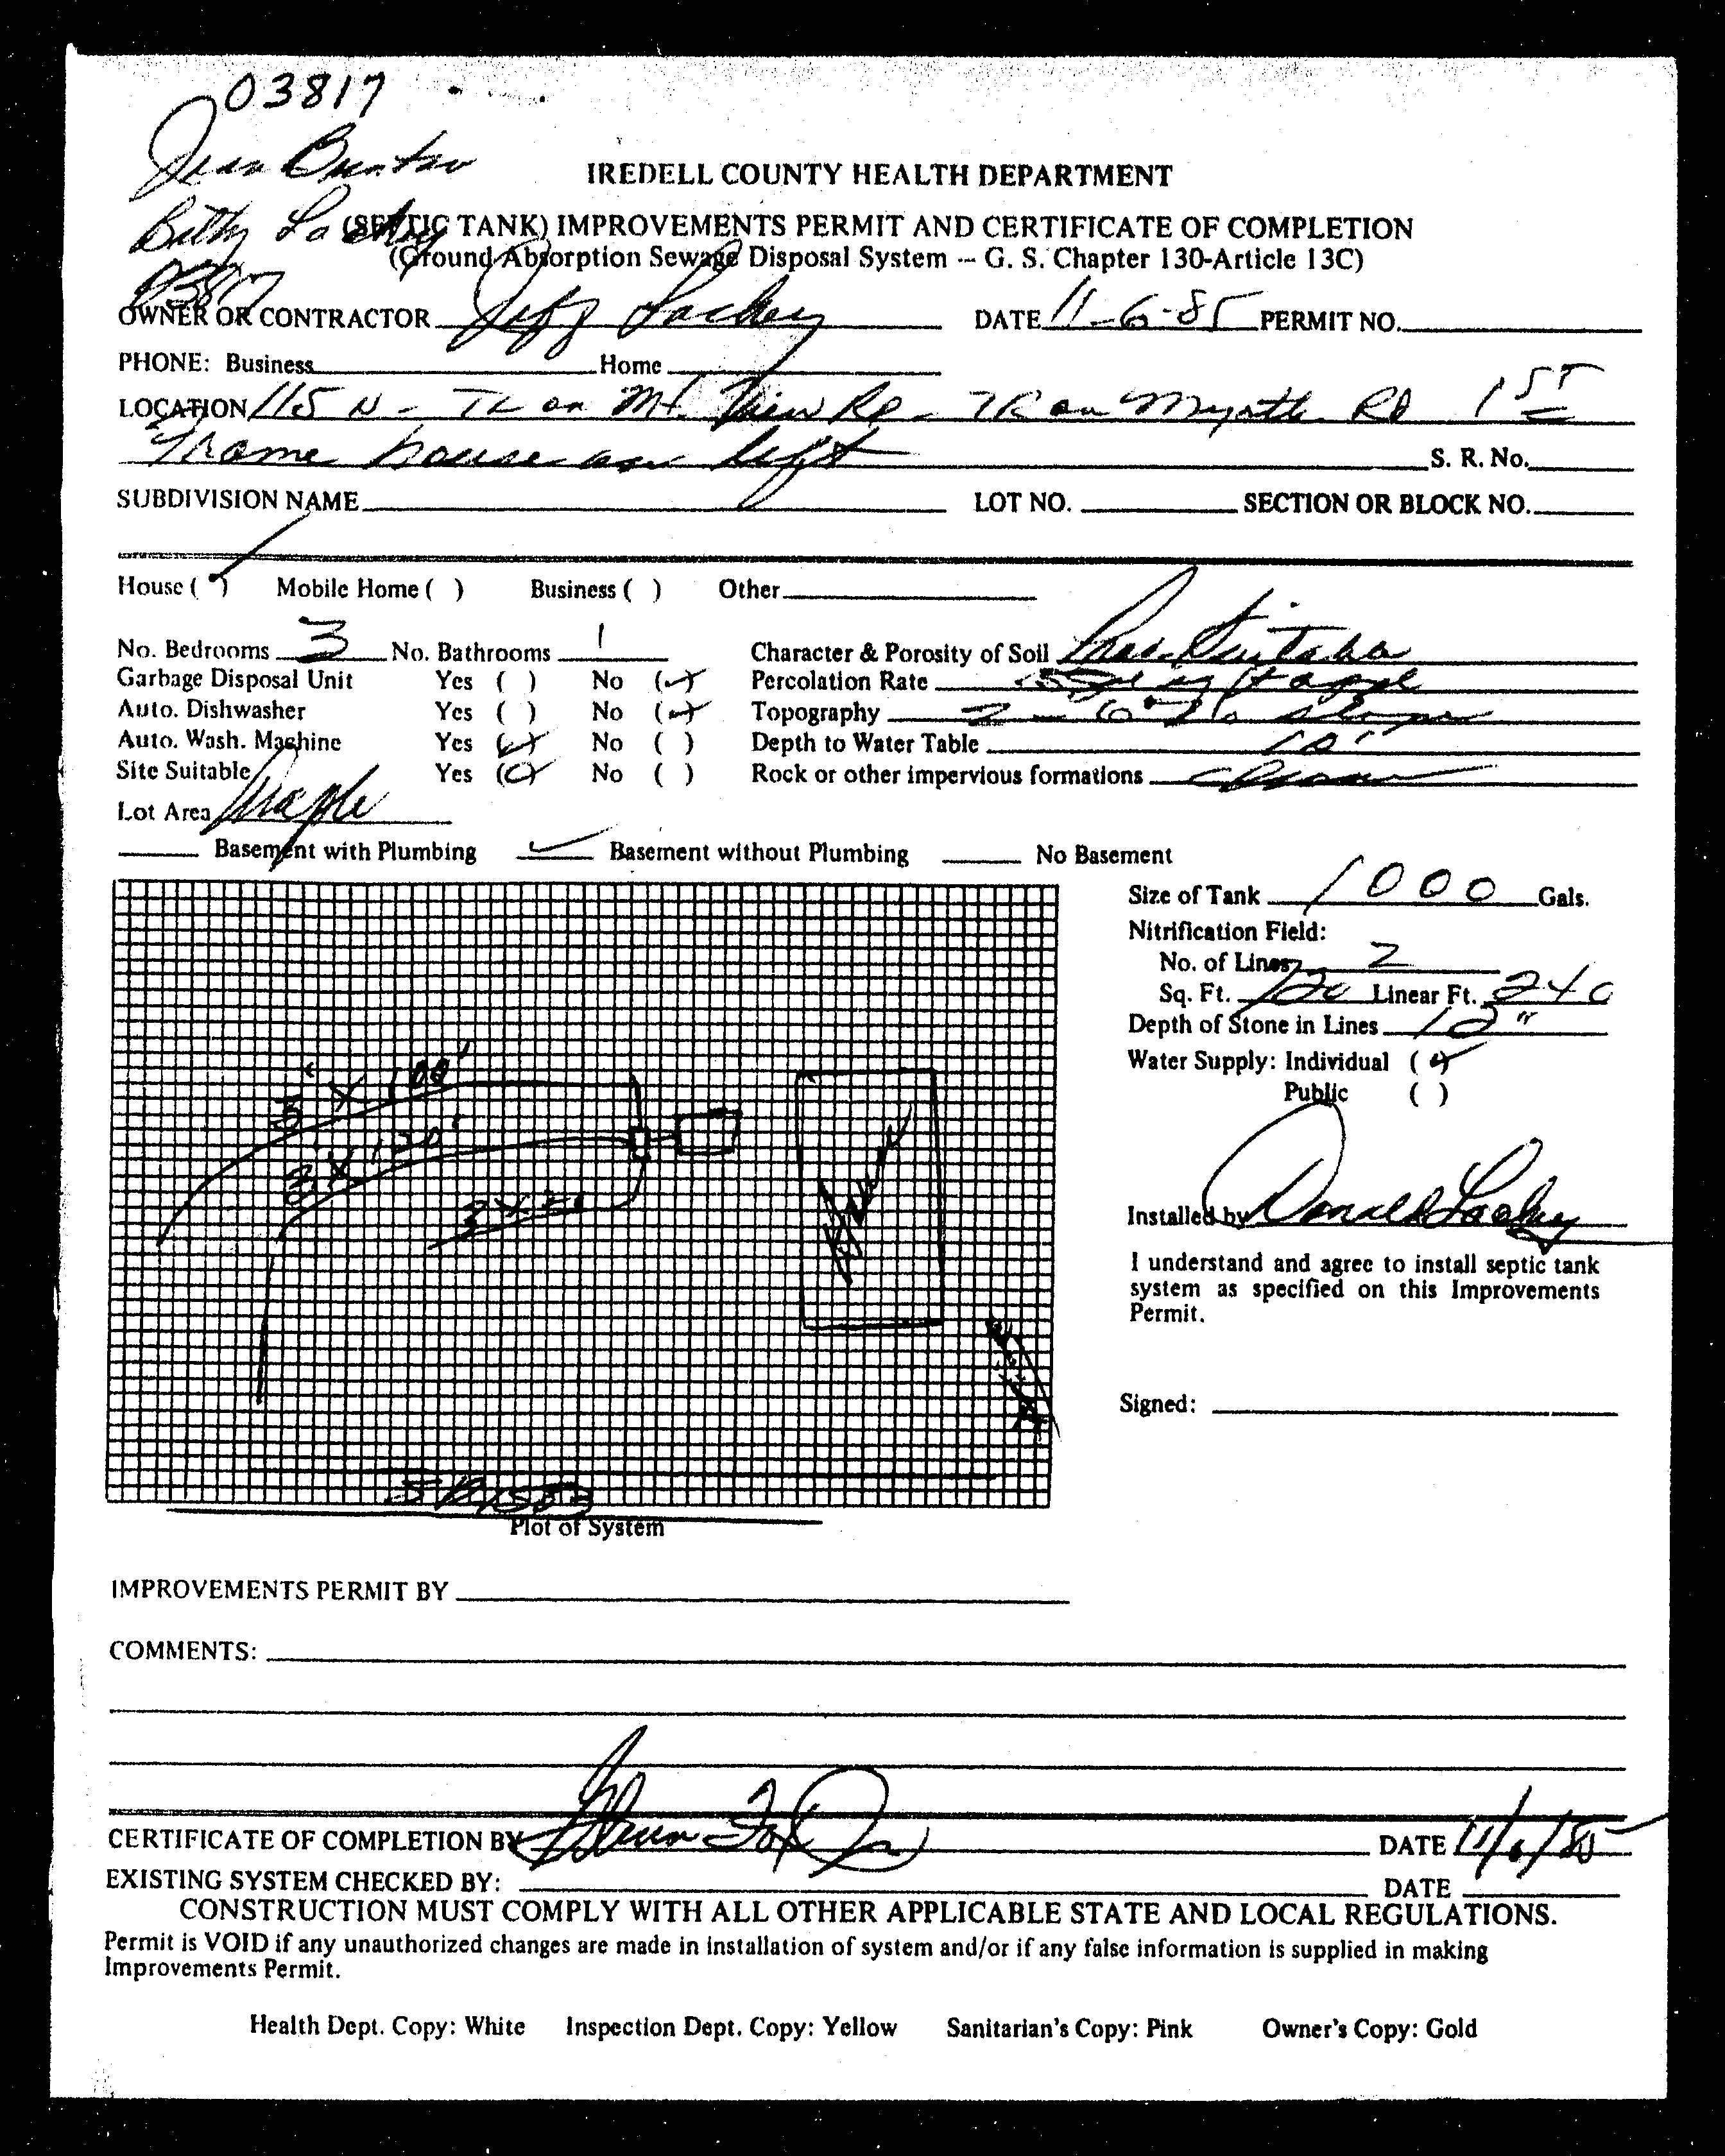 03817
Jean Bunton
Betty Lackey
03817
IREDELL COUNTY HEALTH DEPARTMENT
(SEPTIC TANK) IMPROVEMENTS PERMIT AND CERTIFICATE OF COMPLETION
(Ground Absorption Sewage Disposal System -- G. S. Chapter 130-Article 13C)
OWNER OR CONTRACTOR Jeff Lackey DATE 11-6-85 PERMIT NO.
PHONE: Business Home
LOCATION 115 N - TL on Mt. View Rd - TR on Myrtle Rd 1st
Frame house on left S. R. No.
SUBDIVISION NAME LOT NO. SECTION OR BLOCK NO.
House ( ✓ ) Mobile Home ( ) Business ( ) Other
No. Bedrooms 3 No. Bathrooms 1 Character & Porosity of Soil Suitable
Garbage Disposal Unit Yes ( ) No (✓) Percolation Rate
Auto. Dishwasher Yes ( ) No (✓) Topography 2 - 6% slope
Auto. Wash. Machine Yes (✓) No ( ) Depth to Water Table 10'
Site Suitable Yes (✓) No ( ) Rock or other impervious formations
Lot Area Ample
Basement with Plumbing ✓ Basement without Plumbing No Basement
Size of Tank 1000 Gals.
Nitrification Field:
No. of Lines 2
Sq. Ft. 720 Linear Ft. 240
Depth of Stone in Lines 12"
Water Supply: Individual (✓)
Public ( )
3' X 100'
3' X 120'
3 X 20
Installed by Donald Lackey
I understand and agree to install septic tank
system as specified on this Improvements
Permit.
Signed:
SR 1583
Plot of System
IMPROVEMENTS PERMIT BY
COMMENTS:
CERTIFICATE OF COMPLETION BY Glenn Fox Jr DATE 11/6/85
EXISTING SYSTEM CHECKED BY: DATE
CONSTRUCTION MUST COMPLY WITH ALL OTHER APPLICABLE STATE AND LOCAL REGULATIONS.
Permit is VOID if any unauthorized changes are made in installation of system and/or if any false information is supplied in making
Improvements Permit.
Health Dept. Copy: White Inspection Dept. Copy: Yellow Sanitarian's Copy: Pink Owner's Copy: Gold